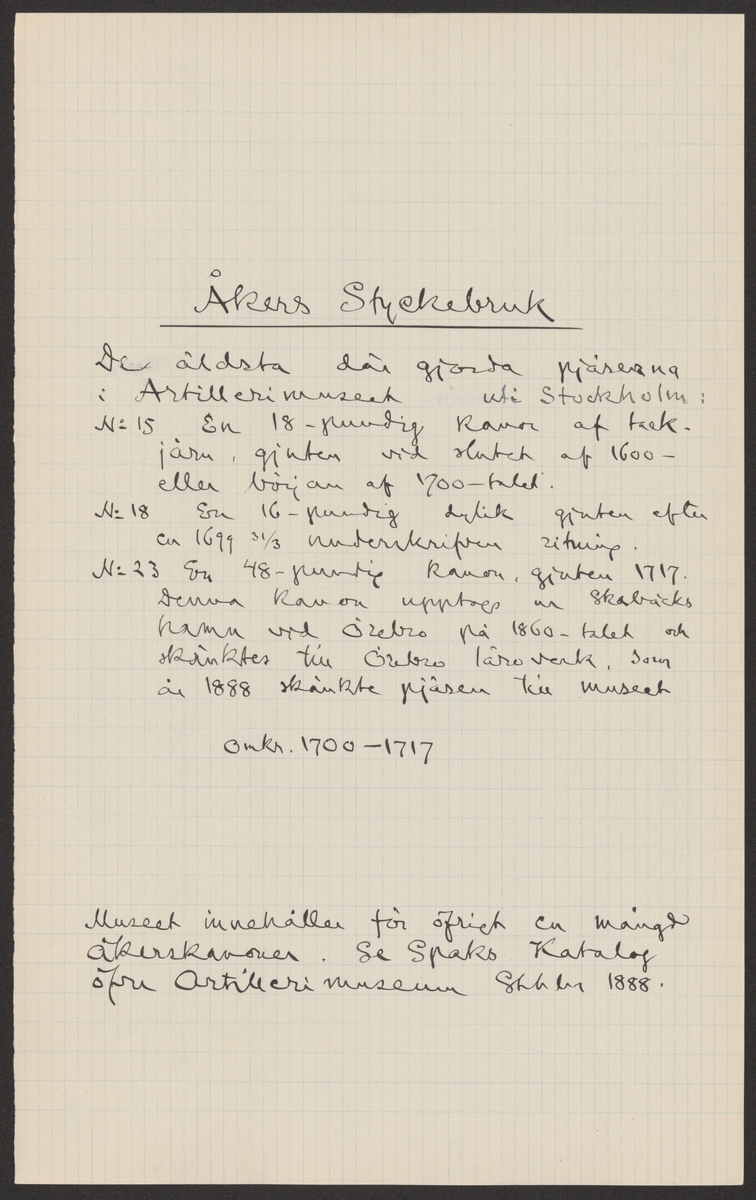 Åkers Styckebruk
De äldsta där gjorda pjäserna
i Artillerimuseet uti Stockholm:
No 15 En 18-pundig kanon af tack-
järn, gjuten vid slutet af 1600-
eller början af 1700-talet.
No 18 En 16-pundig dylik gjuten efter
en 1699 31/3 underskrifven ritning.
No 23 En 48-pundig kanon, gjuten 1717.
Denna kanon upptogs ur Skebäcks
hamn vid Örebro på 1860-talet och
skänktes till Örebro läroverk, som
år 1888 skänkte pjäsen till museet
Omkr. 1700-1717
Museet innehåller för öfrigt en mängd
åkerskanoner. Se Spaks Katalog
öfver Artillerimuseum Sthlm 1888.